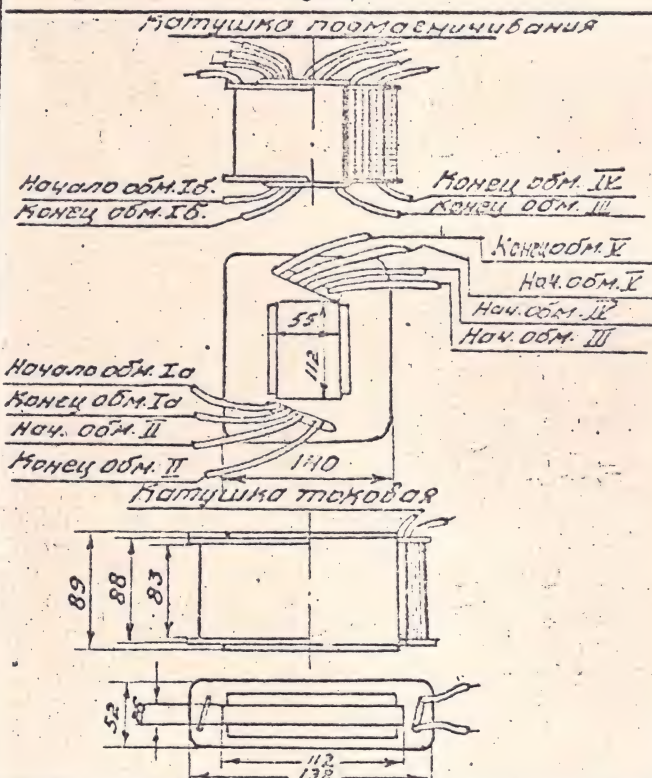 Катушка подмагничивания
Начало обм. Iб.
Конец обм. Iб.
Конец обм. IV
Конец обм. III
Конец обм. V
Нач. обм. V
Нач. обм. IV
Нач. обм. III
55
112
Начало обм. Iа
Конец обм. Iа
Нач. обм. II
Конец обм. II
140
Катушка токовая
89
88
83
52
112
138